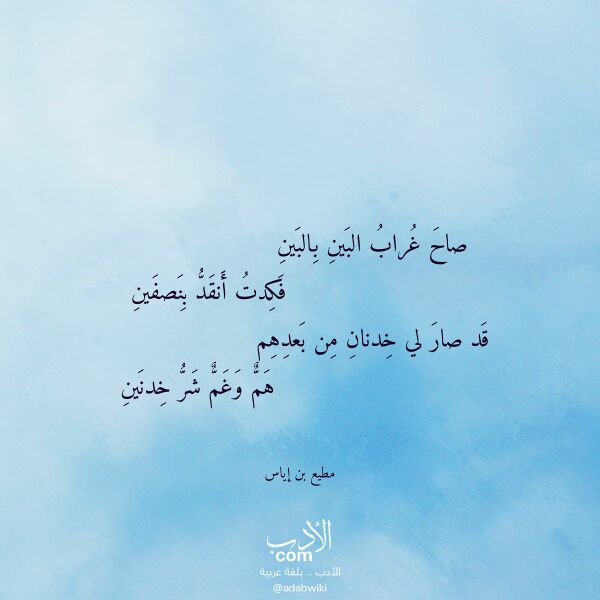 صاحَ غُرابُ البَينِ بِالبَينِ
فَكِدتُ أَنقَدُّ بِنَصفَينِ
قَد صارَ لي خِدنانِ مِن بَعدِهِم
هَمٌّ وَغَمٌّ شَرُّ خِدنَينِ
مطيع بن إياس
الأدب
com
الأدب .. بلغة عربية
@adabwiki